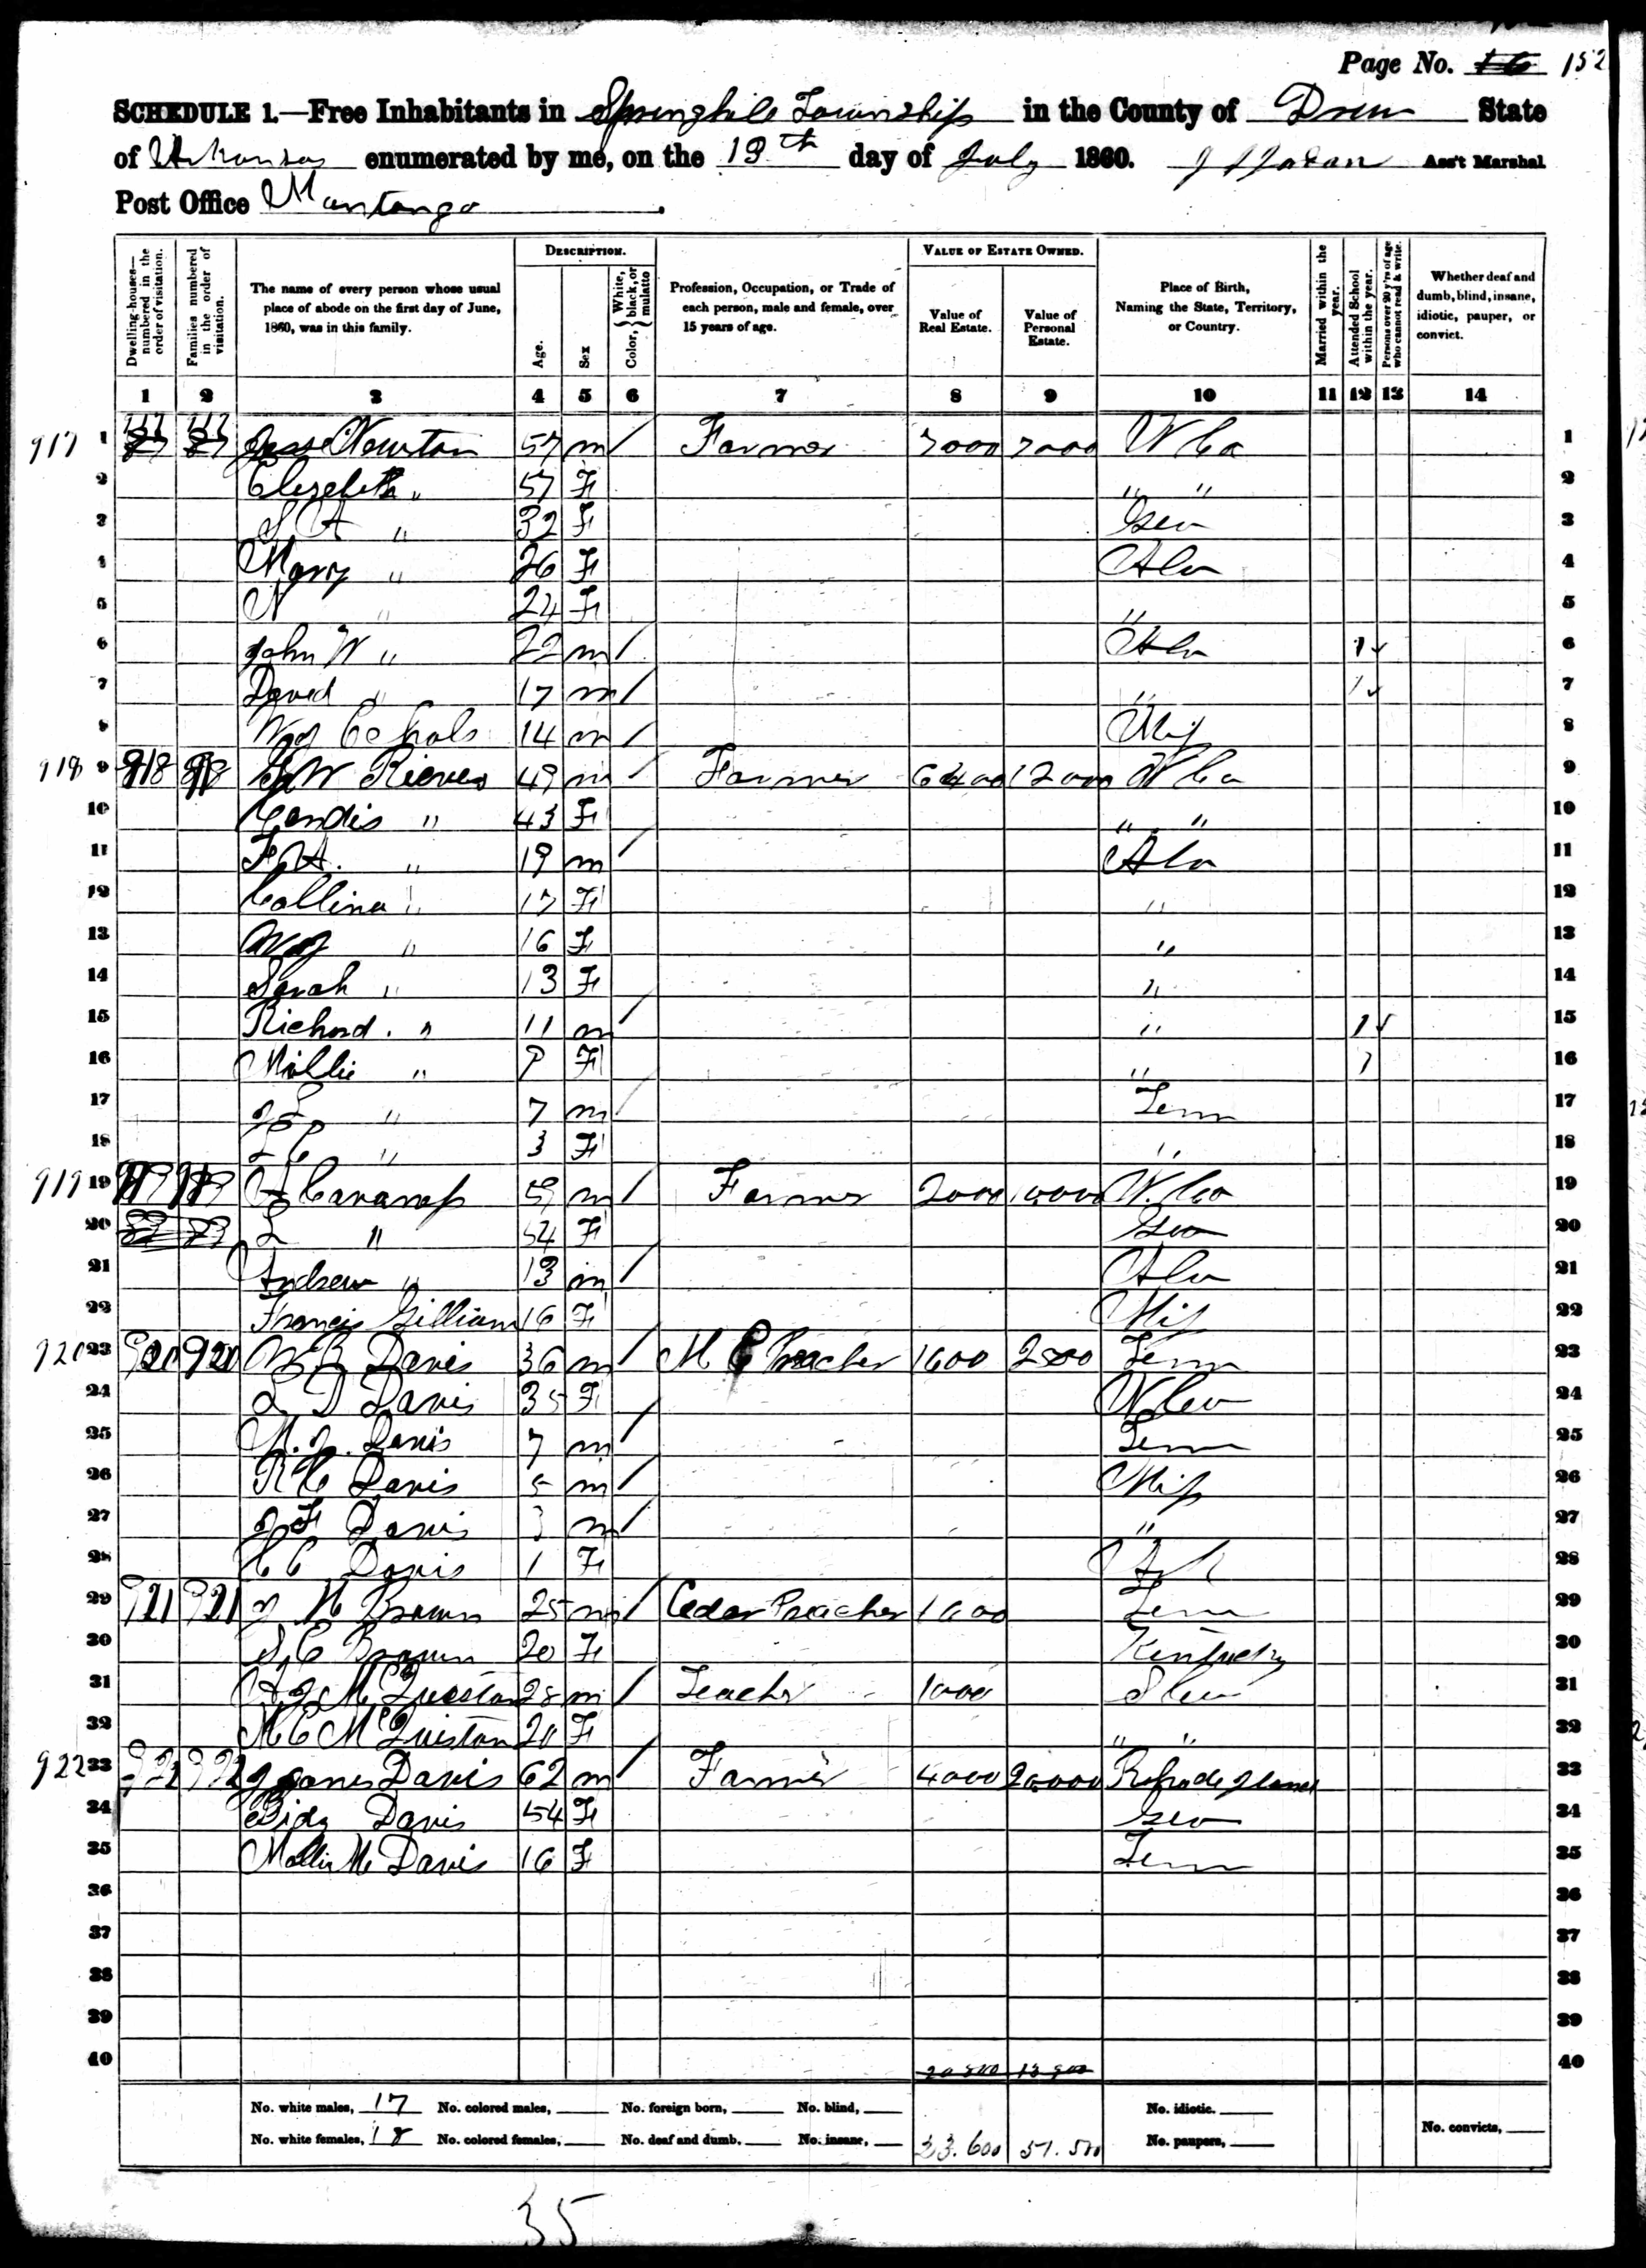 Page No. 16 152
SCHEDULE 1.—Free Inhabitants in Springhile Township in the County of Drew State
of Arkansas enumerated by me, on the 19th day of July 1860. Ass't Marshal
Post Office Montongo
Dwelling-houses—numbered in the order of visitation. Families numbered in the order of visitation. The name of every person whose usual place of abode on the first day of June, 1860, was in this family. DESCRIPTION. Age. Sex Color, {White, black, or mulatto Profession, Occupation, or Trade of each person, male and female, over 15 years of age. VALUE OF ESTATE OWNED. Value of Real Estate. Value of Personal Estate. Place of Birth, Naming the State, Territory, or Country. Married within the year. Attended School within the year. Persons over 20 y'rs of age who cannot read & write. Whether deaf and dumb, blind, insane, idiotic, pauper, or convict.
1 2 3 4 5 6 7 8 9 10 11 12 13 14
917 1 Jesse Newton 57 m / Farmer N Ca 1
2 Elizebeth " 57 F " " 2
3 S A " 32 F Geo 3
4 Mary " 26 F Ala 4
5 N " 24 F " 5
6 John W " 22 m / Ala 1 6
7 David " 17 m / " 1 7
8 14 m / Miss 8
918 9 918 G W Rieves 49 m / Farmer 6400 12000 N Ca 9
10 Candis " 43 F " " 10
11 F A. " 19 m / Ala 11
12 Collina " 17 F " 12
13 " 16 F " 13
14 Sarah " 13 F " 14
15 Richard. " 11 m / " 1 15
16 Mollie " F " 1 16
17 " 7 m / Tenn 17
18 " 3 F " 18
919 19 919 59 m / Farmer 2000 10000 N. Ca 19
20 L " 54 F Geo 20
21 Andrew " 13 m / Ala 21
22 Francis Gilliam 16 F Miss 22
920 23 920 920 Davis 36 m / M E Preacher 1600 2500 Tenn 23
24 Davis 35 F N Ca 24
25 Davis 7 m / Tenn 25
26 R C Davis 5 m / Miss 26
27 J F Davis 3 m / " 27
28 Davis 1 F Ark 28
29 921 921 J N Brown 25 m / Preacher Tenn 29
30 S C Brown 20 F Kentucky 30
31 McQuiston 28 m / Teacher 1000 S Ca 31
32 M E McQuiston 20 F " " 32
922 33 922 922 James Davis 62 m / Farmer 4000 20000 33
34 Bidy Davis 54 F Geo 34
35 Mollie M Davis 16 F Tenn 35
36 36
37 37
38 38
39 39
40 40
No. white males, 17 No. colored males, No. foreign born, No. blind, No. idiotic.
No. white females, 18 No. colored females, No. deaf and dumb, No. insane, 33.600 51.500 No. paupers, No. convicts,
35